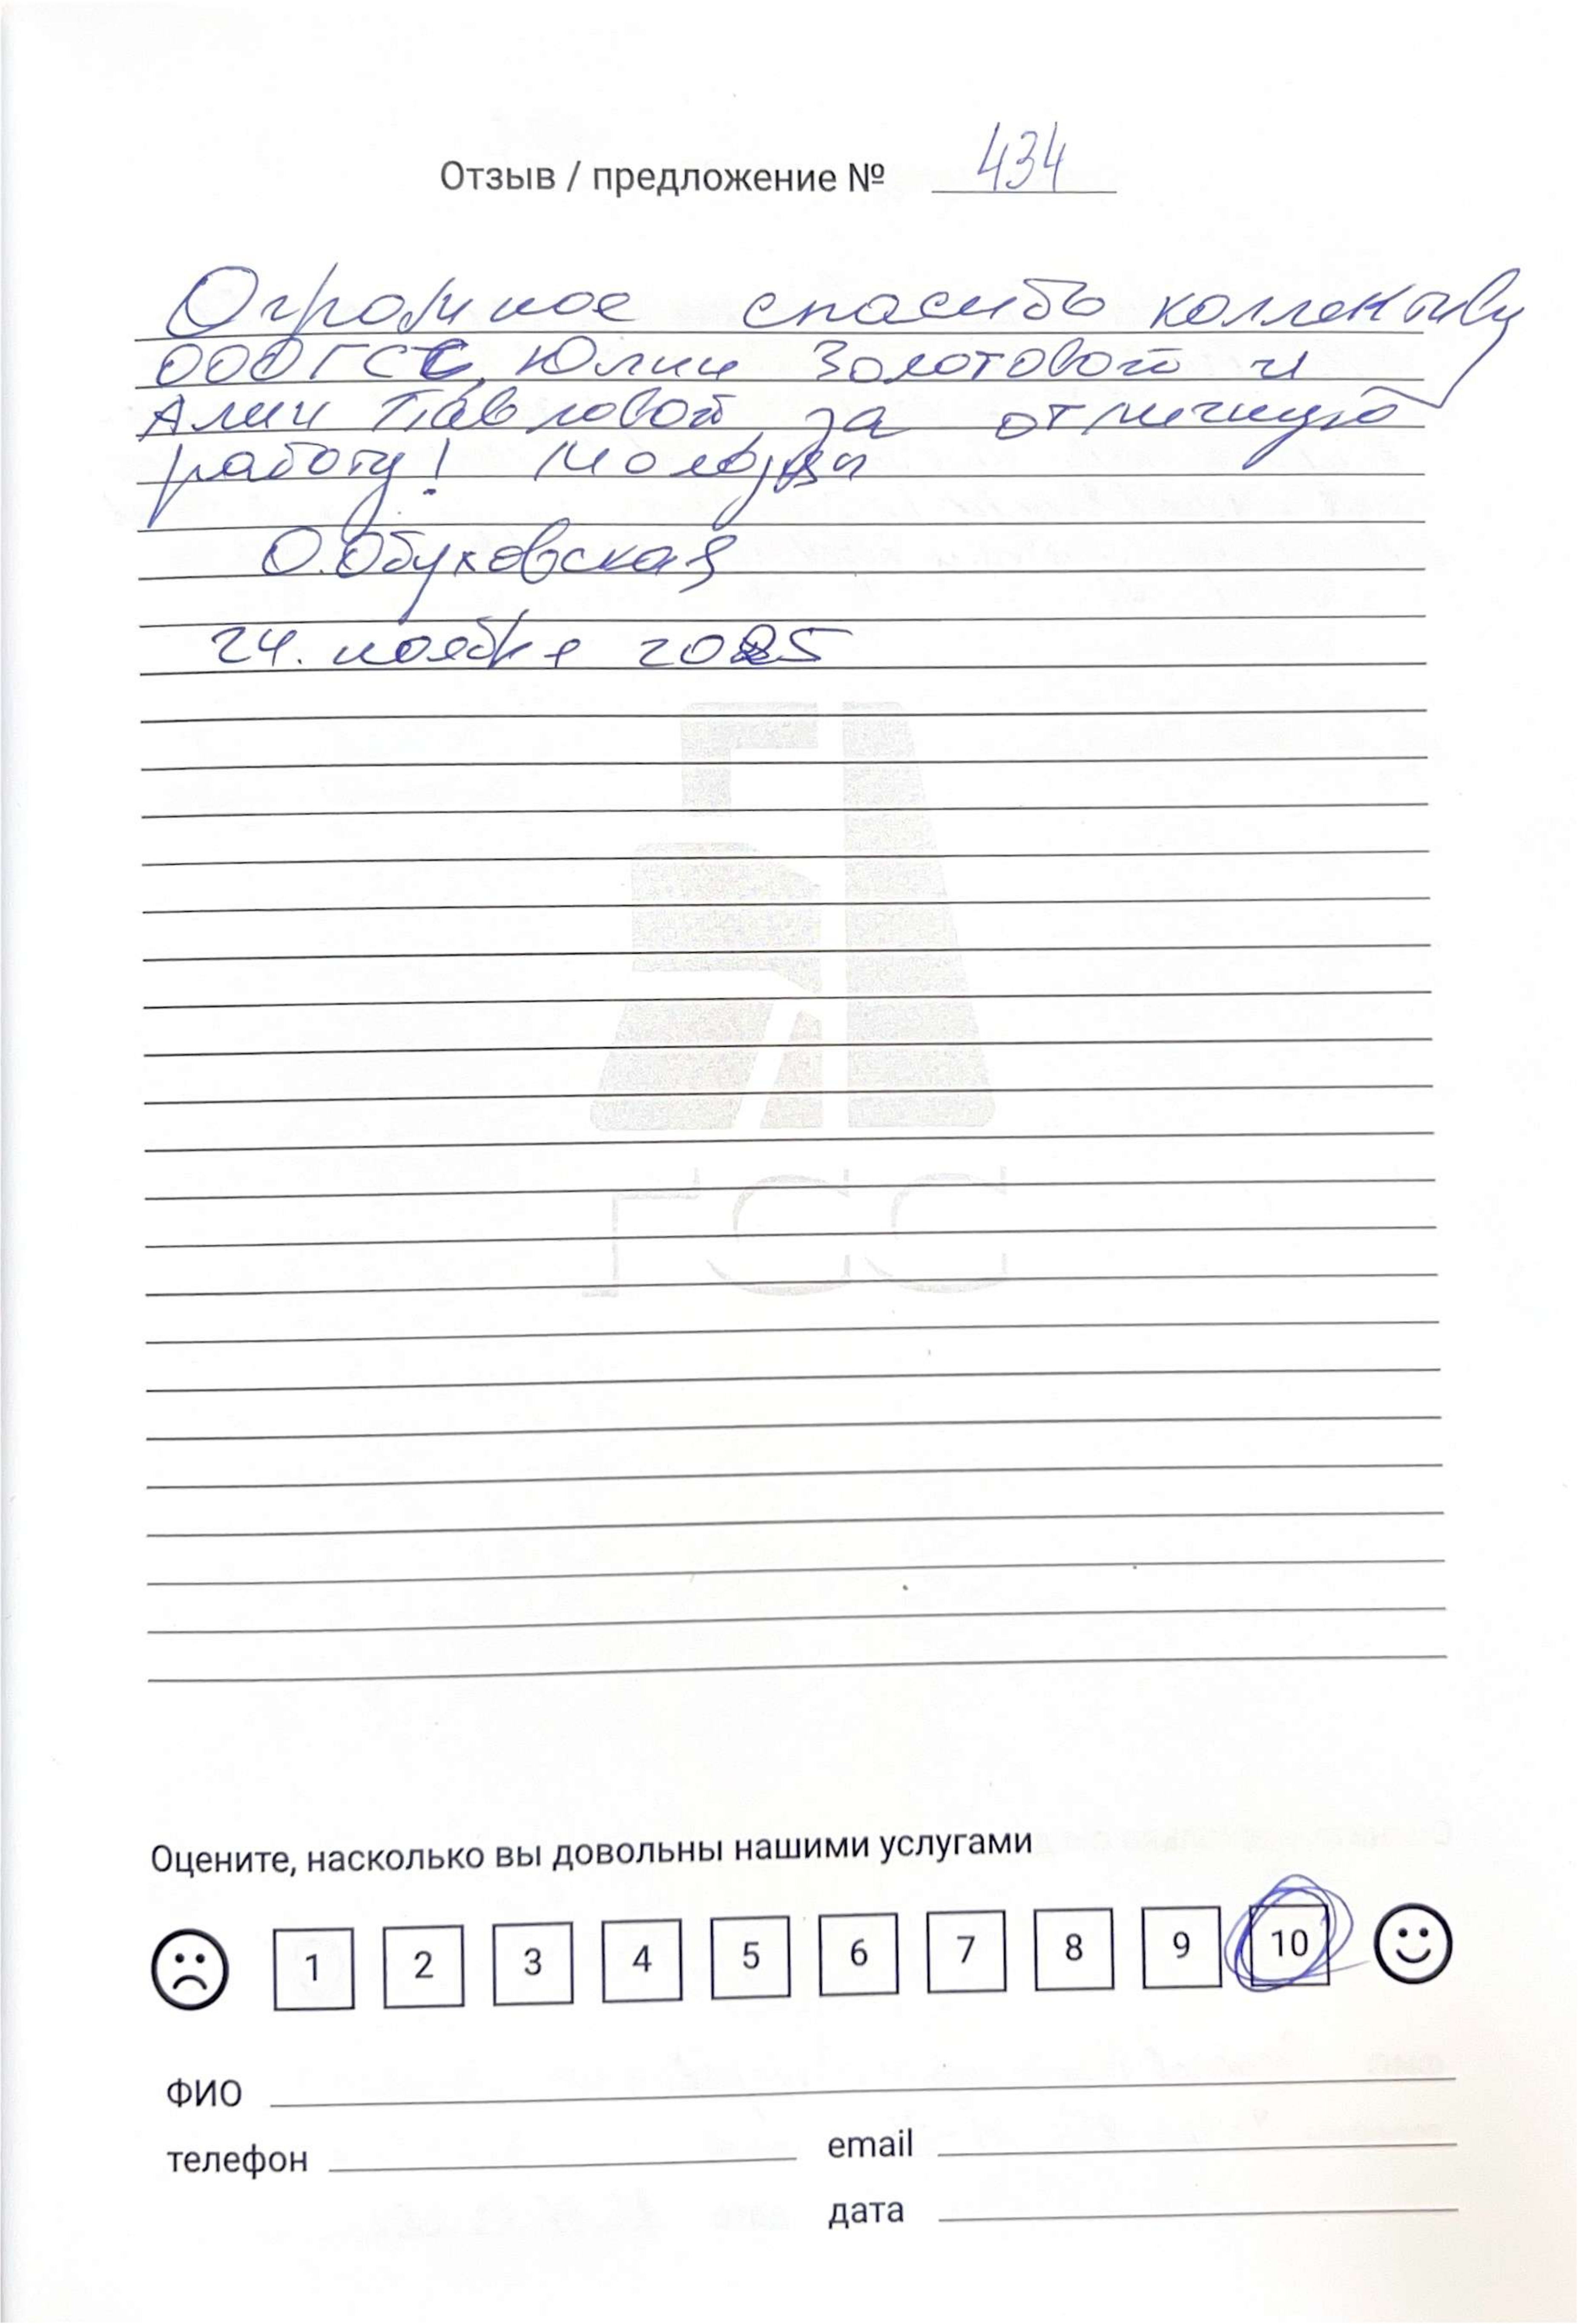 Отзыв / предложение № 434
Огромное спасибо коллективу
ООО ГСС, Юлии Золотовой и
Алии Павловой за отличную
работу! Молодцы
О.Обуховская
24. ноября 2025
ГСС
Оцените, насколько вы довольны нашими услугами
1 2 3 4 5 6 7 8 9 10
ФИО
телефон email
дата